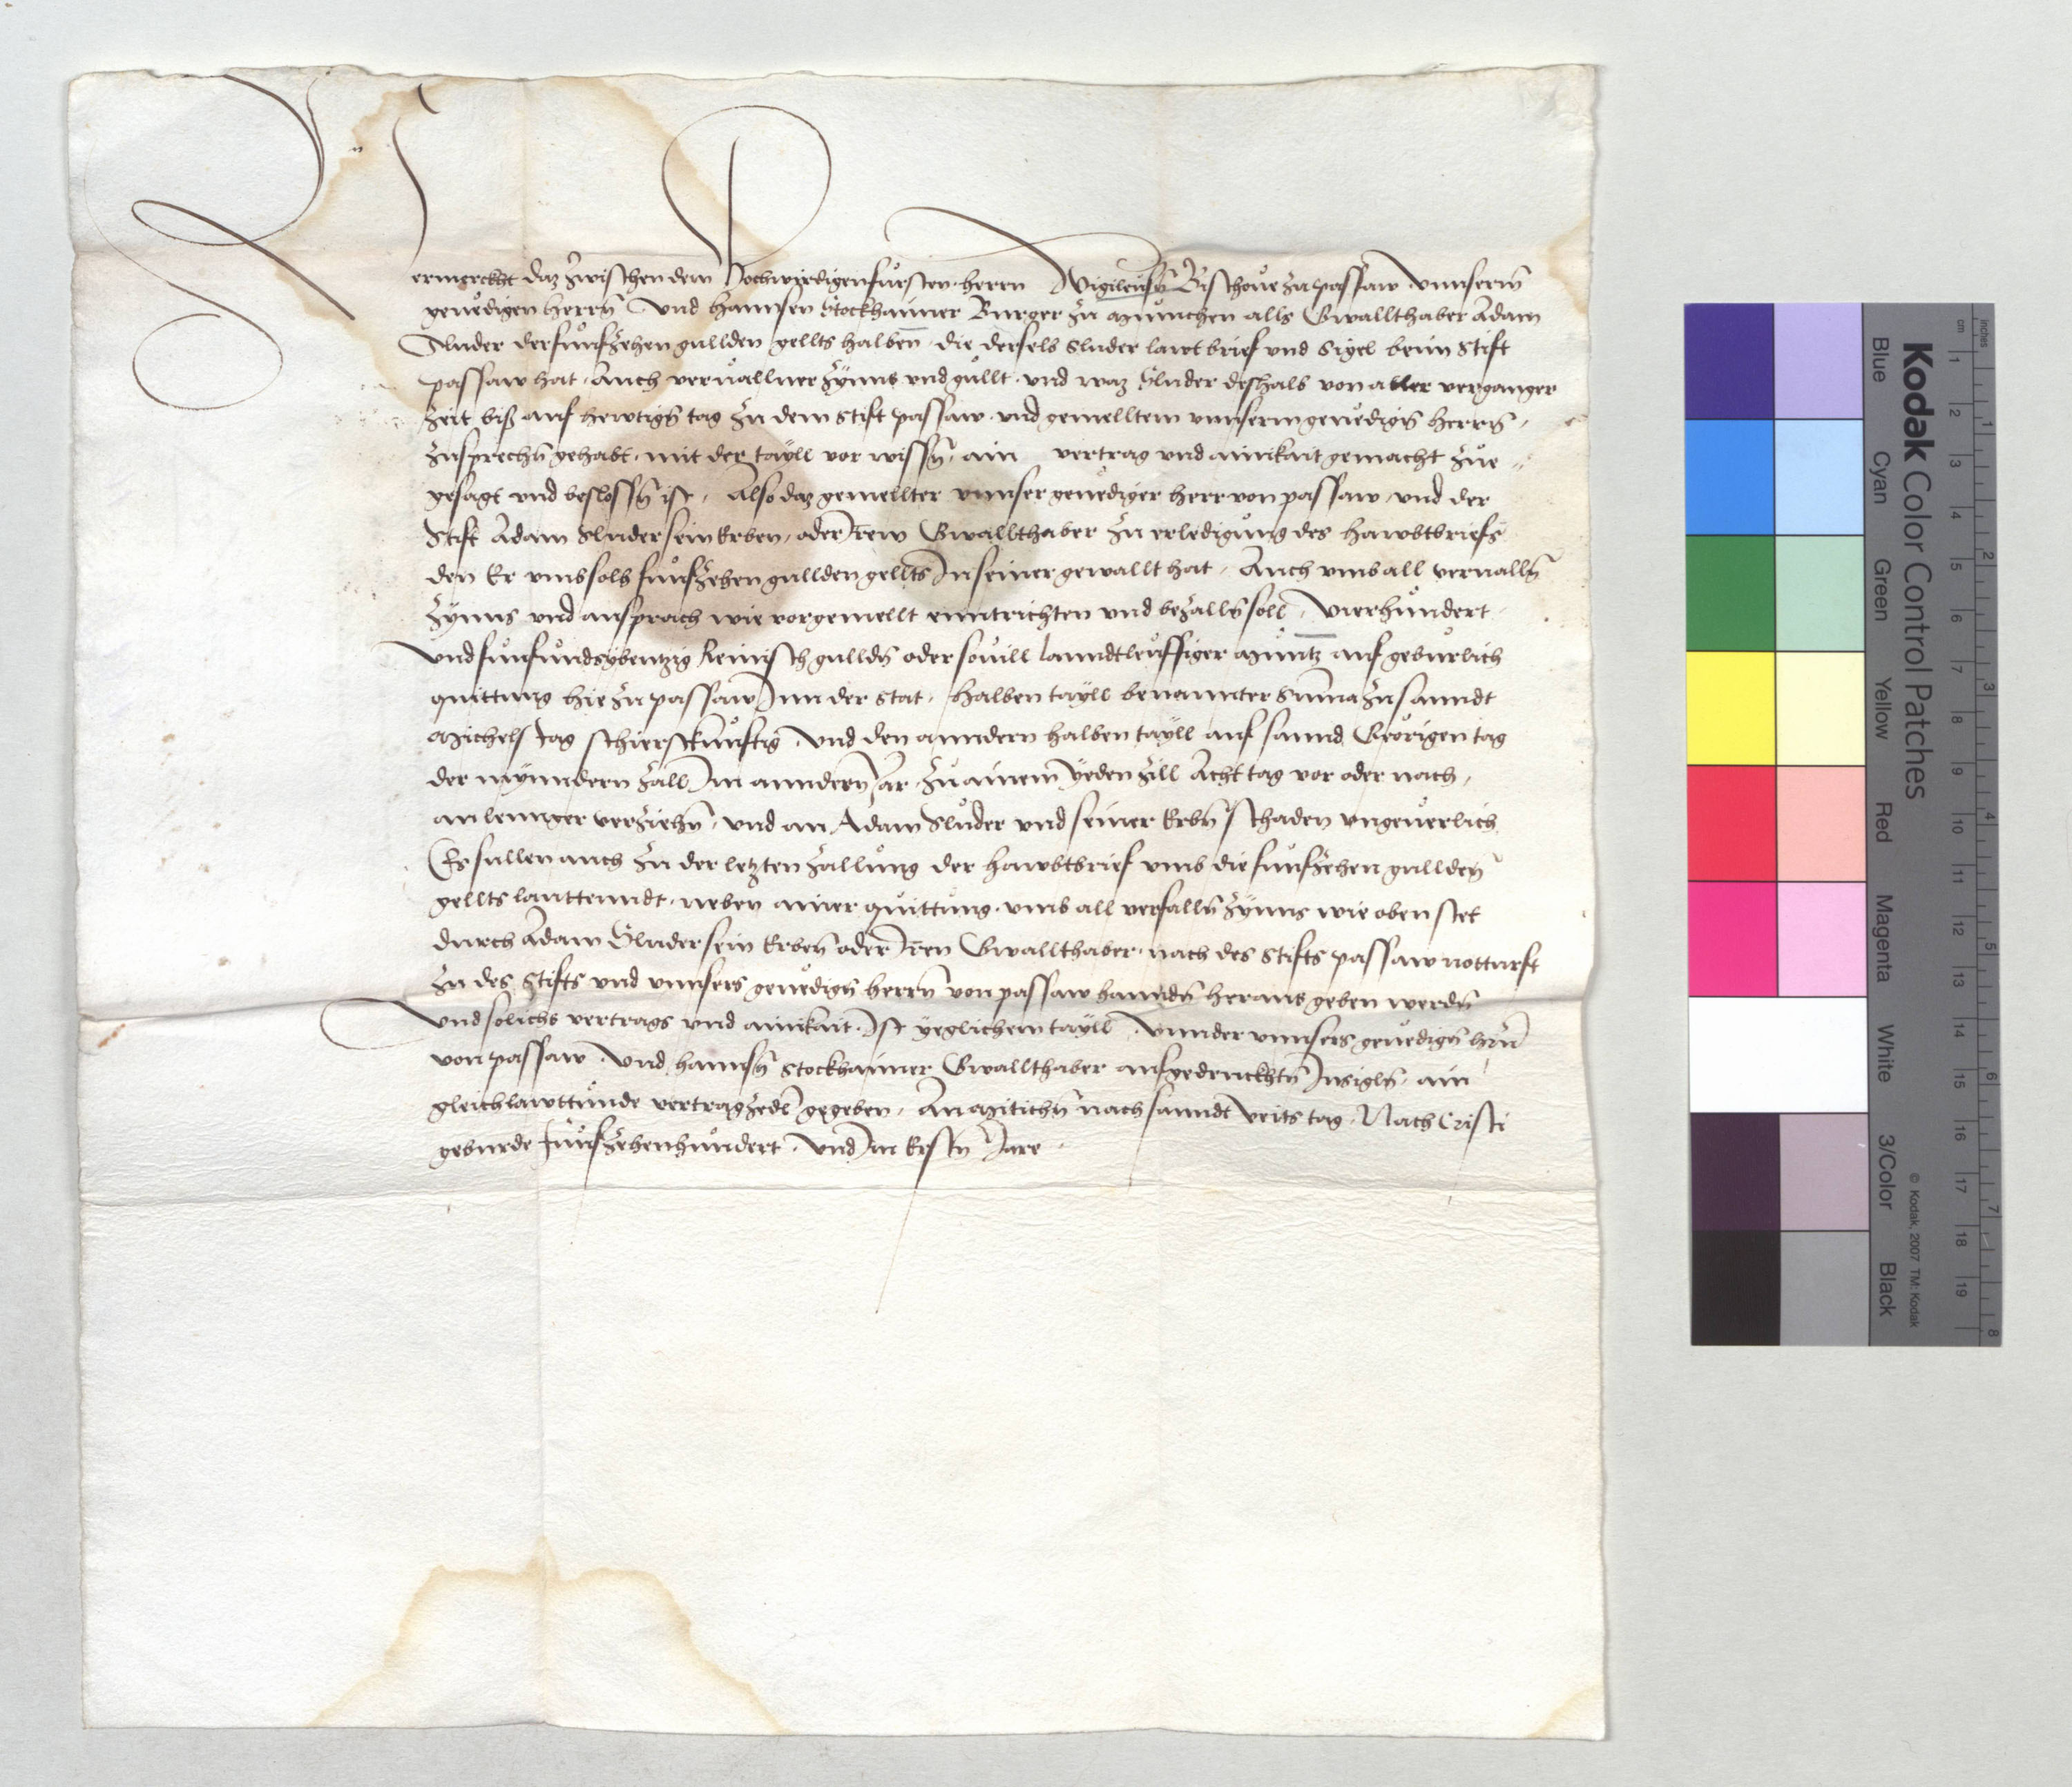 Vermerckht daz zwischen dem Hochwirdigen fürsten herrn Wigileusn̄ Bischoue zu passaw vnnserm̄
genedigen herrn̄ Vnd hannsen Stockhaimer Burger zu München alls Gwallthaber Adam
Sluder der fünfzehen gullden gellts halben̄ die derselb Sluder lawt brief vnd Sigel beim Stift
passaw hat, Auch veruallner Zynns vnd güllt, vnd waz Sluder deshalb von aller verganger
zeit biß auf hewtign̄ tag zu dem Stift passaw, vnd gemelltem vnnserm genedign̄ herrn̄,
zusprechn̄ gehabt, mit der tayll vor wissn̄, ain vertrag vnd ainikait gemacht zue
gesagt vnd beslossn̄ ist, Also daz gemellter vnnser genediger herr von passaw, vnd der
Stift Adam Sluder sein Erben, oder Irem Gwallthaber zu erledigung des hawbtbriefs
den Er vmb solh fünfzehen gullden gellts In seiner gewallt hat, Auch vmb all veruallн̄
Zynns vnd ansprach wie vorgemellt enntrichten vnd bezalln̄ soll, Vierhundert
vnd fünfundsybentzig Reinisch gulldn̄ oder souill lanndtleuffiger Müntz auf geburlich
quittung hie zu passaw Inn der Stat, halben tayll benannter Sum̄a zu sanndt
Michels tag schierstkünftig, Vnd den anndern halben tayll auf sannd Georigen tag
der mynndern zall Im anndern̄ Jar zu ainem̄ yeden zill Acht tag vor oder nach,
an lennger verziehn̄, vnd an Adam Sluder vnd seiner Erbn̄ schaden vngeuerlich
Es sullen auch zu der letzten zallung der hawbtbrief vmb die fünfzehen gullden̄
gellts lauttenndt, neben ainer quittung, vmb all verfalln̄ Zynns wie oben stet
durch Adam Sluder sein Erben̄ oder Iren Gwallthaber, nach des Stifts passaw notturft
zu des Stifts vnd vnnsers genedign̄ herrn̄ von passaw hanndn̄ heraus geben werdn̄
vnd solichs vertrags vnd ainikait, Ist yeglichem tayll, Vnnder vnnsers genedign̄ hrn̄
von passaw, Vnd hannsn̄ Stockhaimer Gwallthaber aufgedruckhtn̄ Insigln̄, ain
gleichlawttunde vertragzedl gegeben, Am Mitichn̄ nach sanndt Veits tag, Nach Cristi
geburde Fünfzehenhundert, vnd Im Erstn̄ Jare